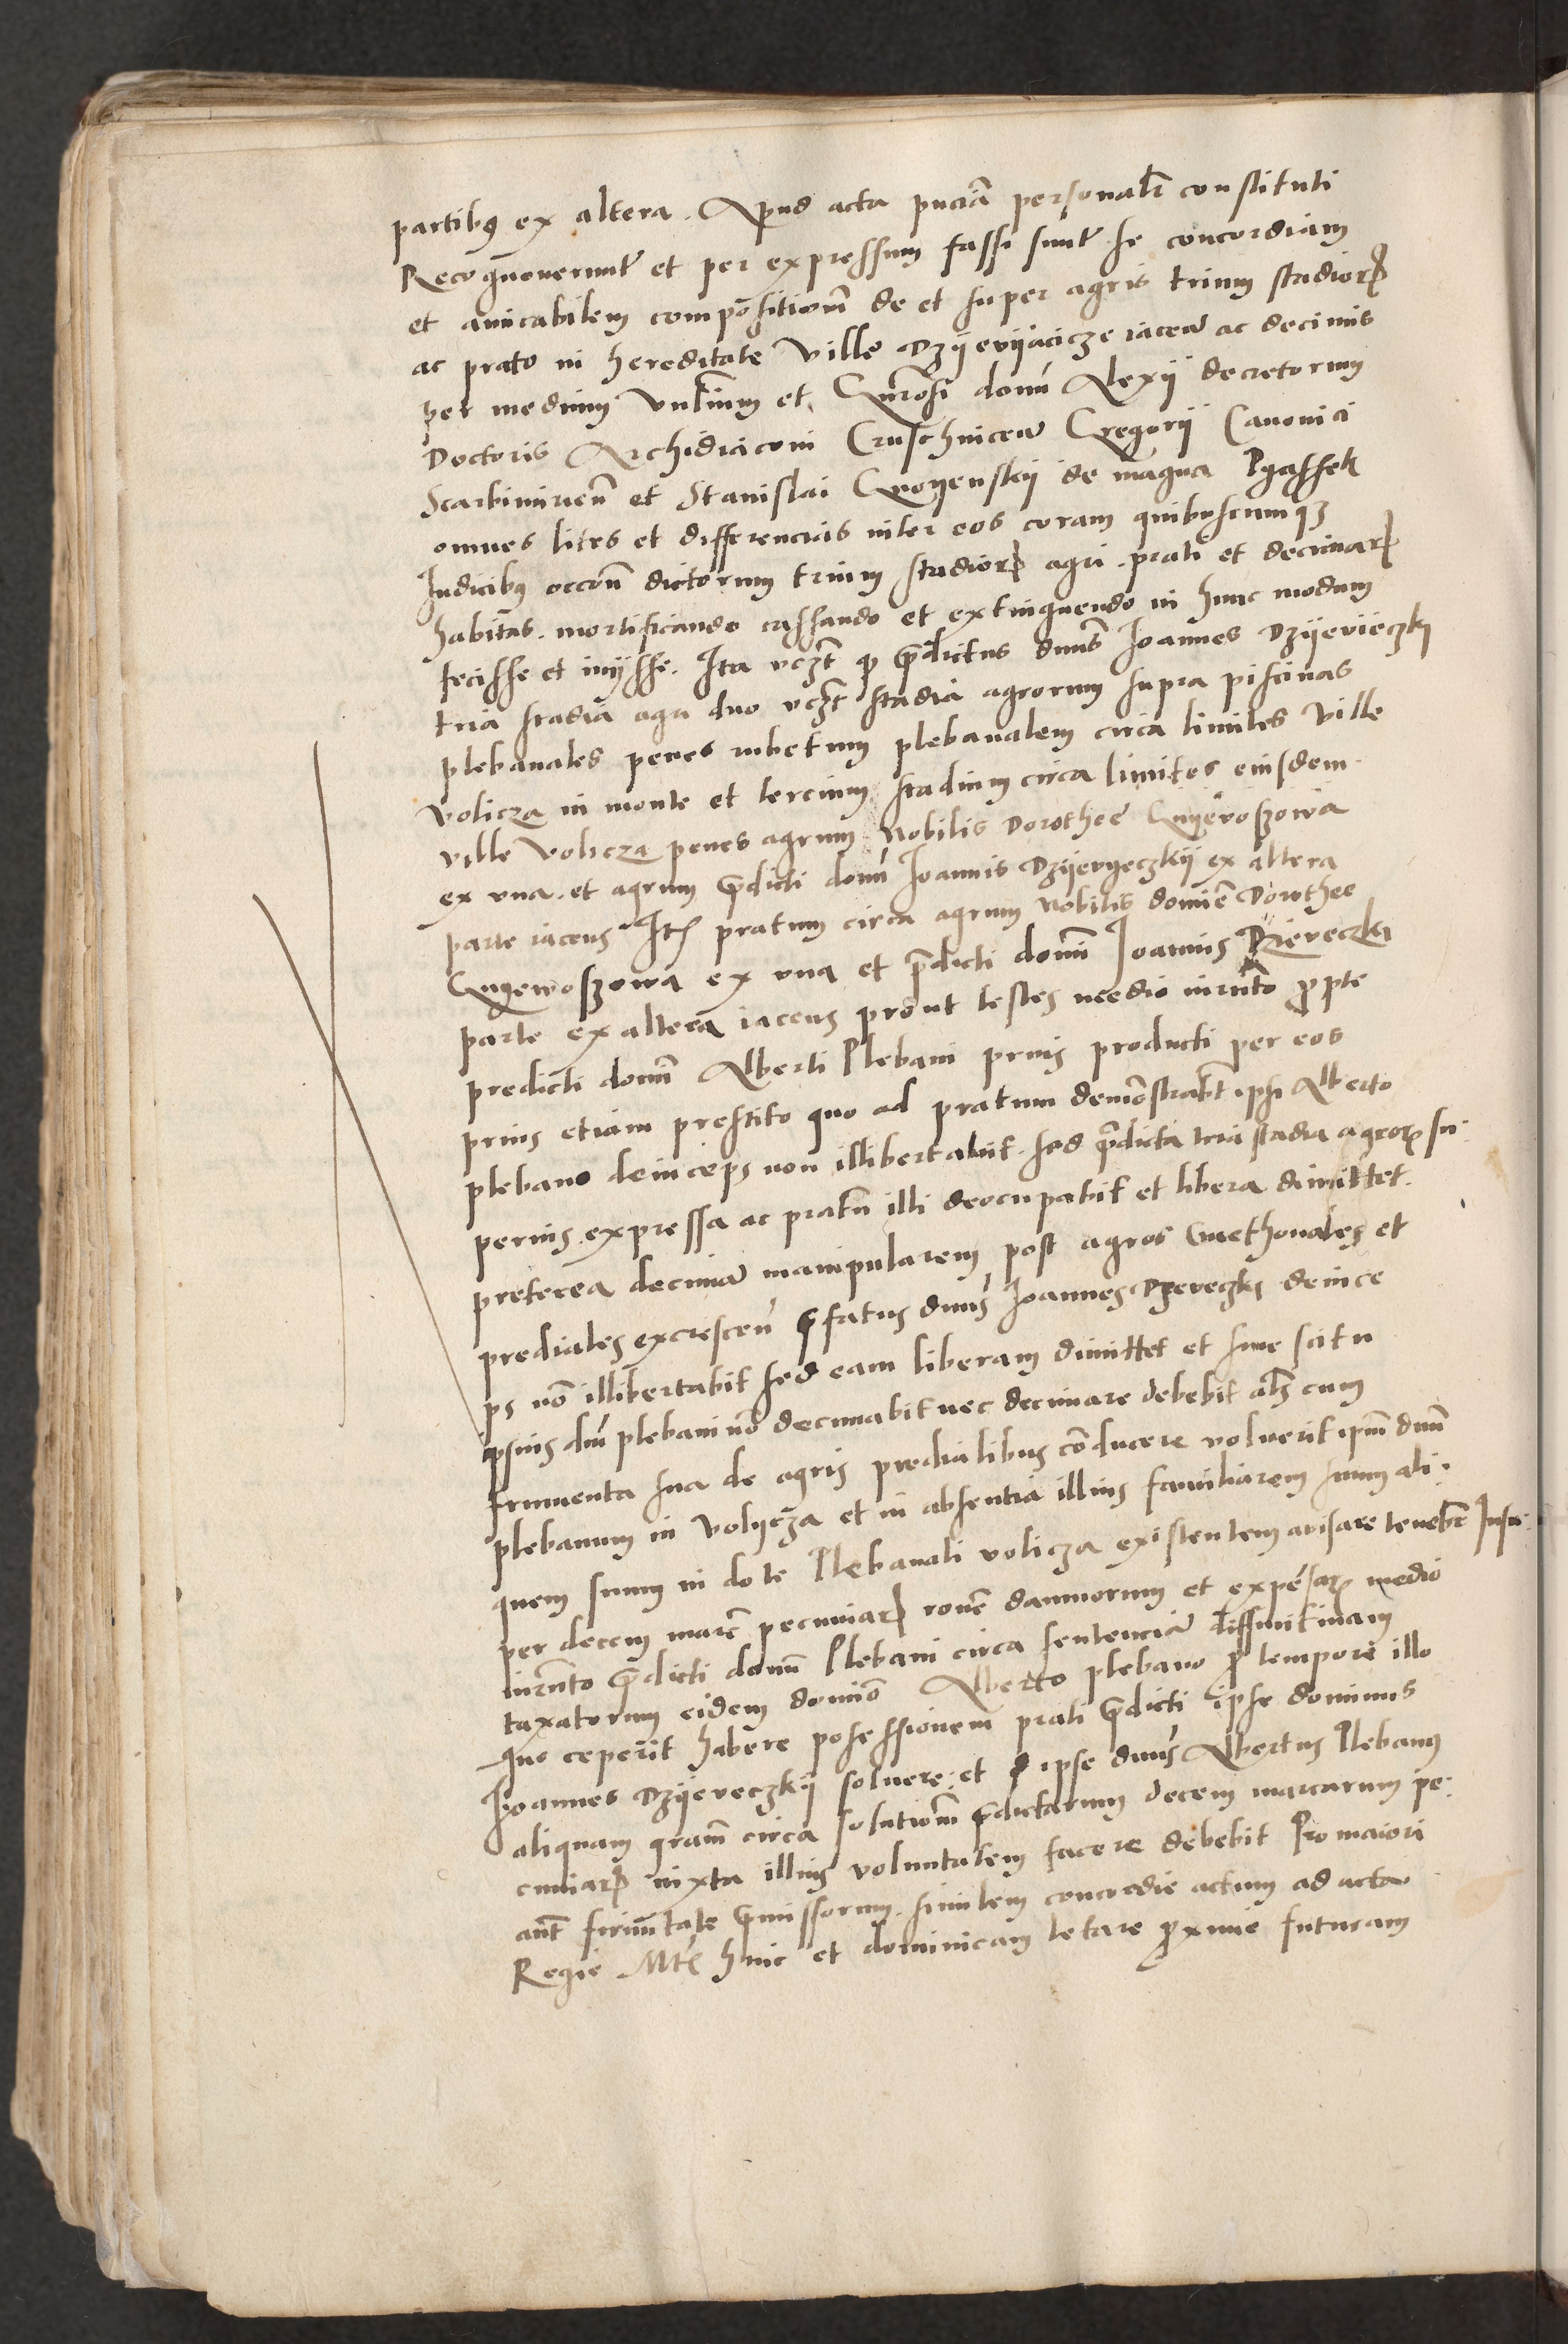 partibus ex altera. Apud acta pnciā personalr constituti
Recognouerunt et per expressum fassi sunt se concordiam
et amicabilem compositionē de et super agris trium stadiorꝝ
ac prato in hereditate Ville Dzyevyaczicze iacen ac decimis
per medium et Gnrosi domī Alexij decretorum
Doctoris Archidiaconi Cruschuicen Gregorij Canonici
Scarbimirien et Stanislai de magna Pyassek
omnes lites et differencias inter eos coram quibuscumqꝫ
Iudicibꝰ occōne dictorum trium stadiorꝝ agri. prati et decimarꝝ
habitas. mortificando cassando et extinguendo in hunc modum
fecisse et inijsse. Ita vcꝫt ꝙ p̄dictus dnus Ioannes Dzyevieczky
tria stadia agri duo vcꝫt stadia agrorum supra piscinas
plebanales penes rubetum plebanalem circa limites ville
Volicza in monte et tercium stadium circa limites eiusdem
ville Volicza penes agrum Nobilis Dorothee Gnyewoszowa
ex vna. et agrum p̄dicti domī Ioannis Dzyevyeczkij ex altera
parte iacens Itē pratum circa agrum Nobilis domīe Dorothee
Gnyewoszowa ex vna et p̄dicti domī Ioannis Dzieveczki
parte ex altera iacens prout testes medio iurnto ꝓ pte
predicti domī Alberti Plebani prius producti per eos
prius etiam prestito quo ad pratum demōstrabt ipsi Alberto
plebano deinceps non illibertabit. sed p̄dicta tria stadia agrorꝝ su-
perius expressa ac pratū illi deocupabit et libera dimittet.
preterea decimā manipularem post agros Cmethonales et
prediales excrescen p̄fatus dnus Ioannes Dzeveczki deince
ps nō illibertabit sed eam liberam dimittet et sine scitu
ipsius dni plebani nō decimabit nec decimare debebit als cum
frumenta sua de agris predialibus cōducere voluerit ipm dnm
plebanum in Volycza et in absentia illius familiarem suum ali-
quem suum in dote Plebanali volicza existentem avisare tenebit Insu-
per decem marc̄ pecuniarꝝ rōne damnorum et expēsarꝝ medio
iurnto p̄dicti domī Plebani circa sentenciā diffinitiuam
taxatorum eidem domino Alberto plebano ꝓ tempore illo
quo ceperit habere possessionem prati p̄dicti ipse dominus
Ioannes Dzyeveczkij soluere. et ipse dnus Albertus Plebanus
aliquam gram circa solutionē p̄dictarum decem marcarum pe-
cuniarꝝ iuxta illius voluntatem facere debebit Pro maiori
aut firmitate p̄missorum. similem concordie actum ad acta
Regie Mtis hinc et dominicam letare ꝓxime futuram